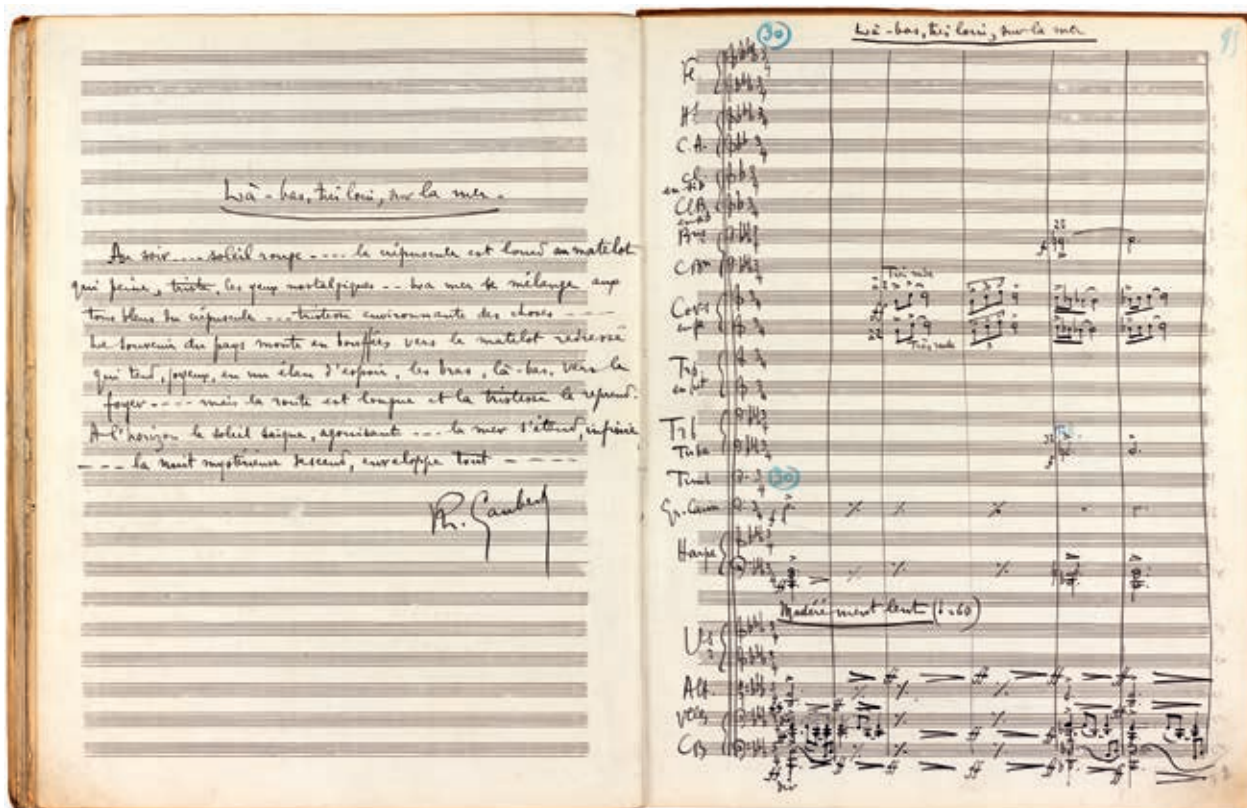 Là-bas, très loin, sur la mer -
Au soir .... soleil rouge ---- le crépuscule est lourd au matelot
qui peine, triste, les yeux nostalgiques -- La mer se mélange aux
tons bleus du crépuscule --- tristesse environnante des choses ----
Le souvenir du pays monte en bouffées vers le matelot redressé
qui tend, joyeux, en un élan d'espoir, les bras, là-bas, vers le
foyer ---- mais la route est longue et la tristesse le reprend.
A l'horizon le soleil saigne, agonisant --- la mer s'étend, infinie
---- la nuit mystérieuse descend, enveloppe tout - - - -
Ph. Gaubert
Là-bas, très loin, sur la mer
30
Fl
Ht
C.A.
Cl.
en sib
ClB
en sib
CBn
Très rude
Cors
en fa
Très rude
3
Trp
en ut
Trb
Tuba
Timb
30
Gr. Caisse
f
Harpe
ff
Modérément lent (♩=60)
Vs
Alt.
ff ff ff ff ff
Velles
CB
ff ff ff ff ff
div